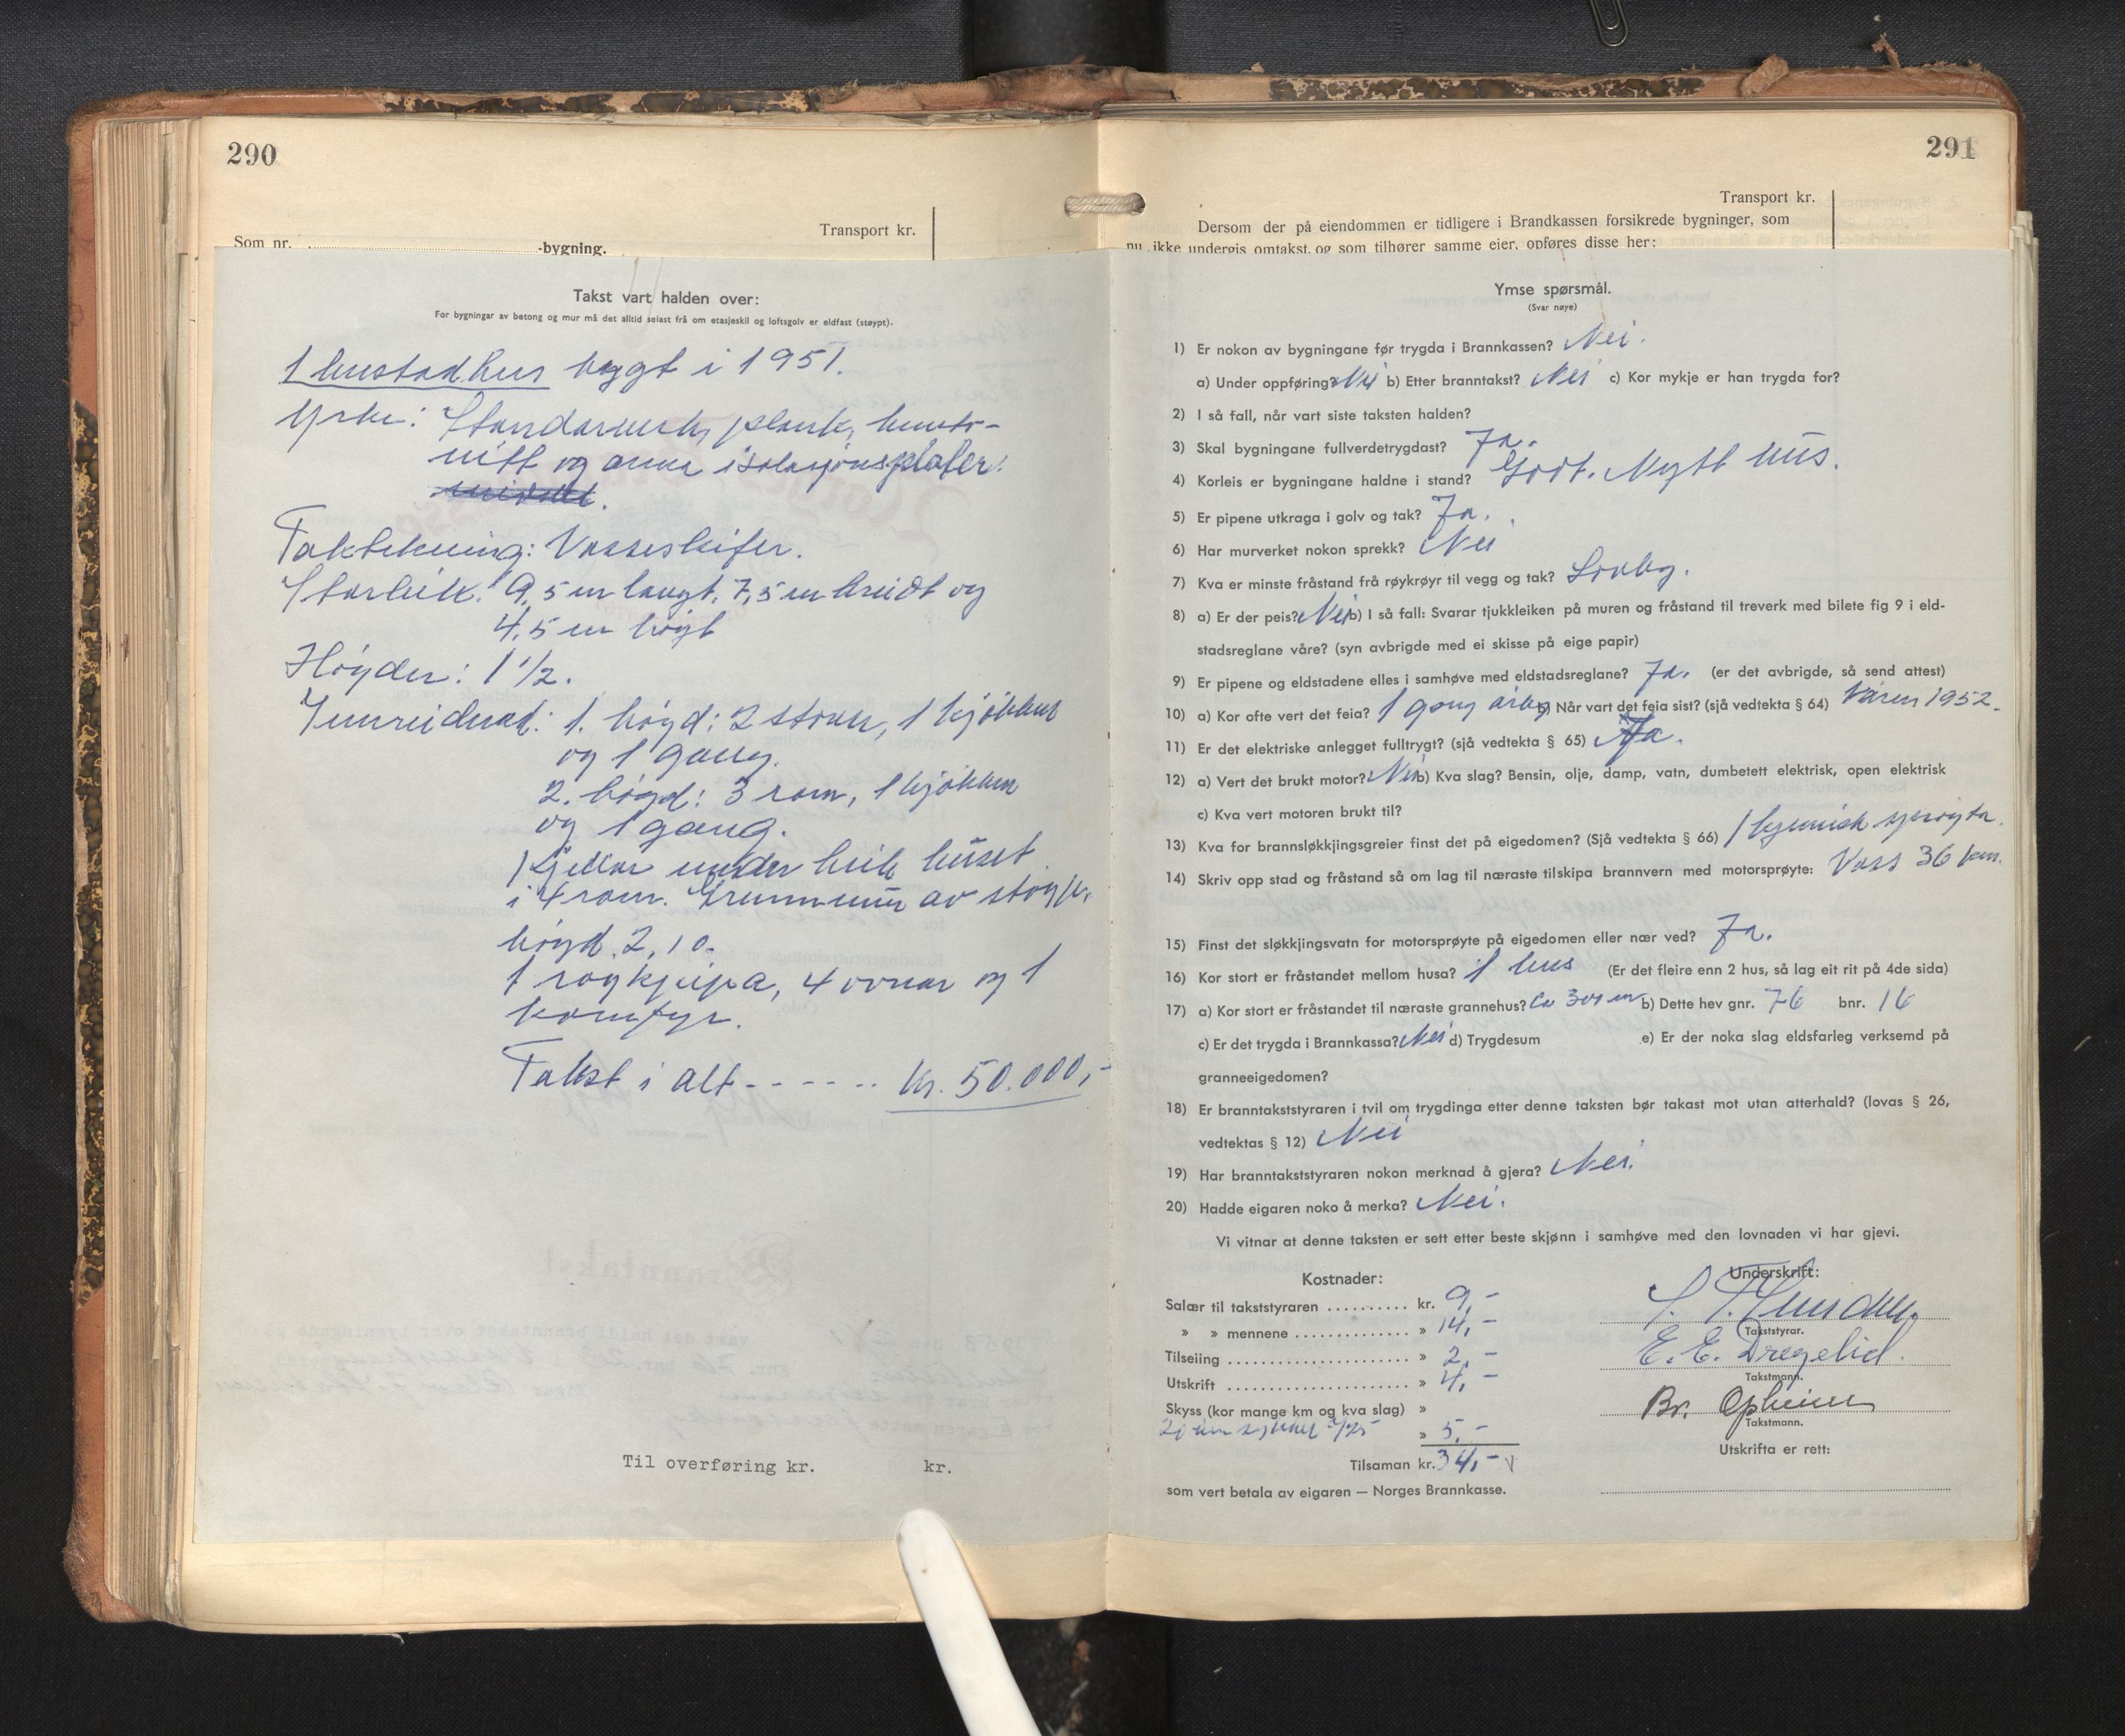 290
Transport kr.
Som nr. -bygning.
Takst vart halden over:
For bygningar av betong og mur må det alltid seiast frå om etasjeskil og loftsgolv er eldfast (støypt).
1 bustadhus bygt i 1951.
Yrke: Standarverk, plank, hunto-
nitt og anna isolasjonsplater.
Taktekning: Vosseskifer.
Storleik: 9,5 m langt, 7,5 m breidt og
4,5 m høgt
Høgder: 1 1/2.
Innreidnad: 1. høgd: 2 stover, 1 kjøkken
og 1 gang.
2. høgd: 3 rom, 1 kjøkken
og 1 gang.
Kjellar under heile huset
i 4 rom. Grunnmur av støyp,
høgd 2,10.
1 røykpipa, 4 ovnar og 1
komfyr.
Takst i alt - - - - - - kr. 50.000,-
Til overføring kr. kr.
291
Transport kr.
Dersom der på eiendommen er tidligere i Brandkassen forsikrede bygninger, som
nu ikke undergis omtakst, og som tilhører samme eier, opføres disse her:
Ymse spørsmål.
(Svar nøye)
1) Er nokon av bygningane før trygda i Brannkassen? Nei.
a) Under oppføring? Nei b) Etter branntakst? Nei c) Kor mykje er han trygda for?
2) I så fall, når vart siste taksten halden?
3) Skal bygningane fullverdetrygdast? Ja.
4) Korleis er bygningane haldne i stand? Godt. Nytt hus.
5) Er pipene utkraga i golv og tak? Ja.
6) Har murverket nokon sprekk? Nei
7) Kva er minste fråstand frå røykrøyr til vegg og tak? Lovleg.
8) a) Er der peis? Nei b) I så fall: Svarar tjukkleiken på muren og fråstand til treverk med bilete fig 9 i eld-
stadsreglane våre? (syn avbrigde med ei skisse på eige papir)
9) Er pipene og eldstadene elles i samhøve med eldstadsreglane? Ja. (er det avbrigde, så send attest)
10) a) Kor ofte vert det feia? 1 gong årleg b) Når vart det feia sist? (sjå vedtekta § 64) Våren 1952.
11) Er det elektriske anlegget fulltrygt? (sjå vedtekta § 65) Ja.
12) a) Vert det brukt motor? Nei b) Kva slag? Bensin, olje, damp, vatn, dumbetett elektrisk, open elektrisk
c) Kva vert motoren brukt til?
13) Kva for brannsløkkjingsgreier finst det på eigedomen? (Sjå vedtekta § 66) 1 kjemisk sprøyta.
14) Skriv opp stad og fråstand så om lag til næraste tilskipa brannvern med motorsprøyte: Voss 36 km.
15) Finst det sløkkjingsvatn for motorsprøyte på eigedomen eller nær ved? Ja.
16) Kor stort er fråstandet mellom husa? 1 hus (Er det fleire enn 2 hus, så lag eit rit på 4de sida)
17) a) Kor stort er fråstandet til næraste grannehus? Ca 300 m b) Dette hev gnr. 76 bnr. 16
c) Er det trygda i Brannkassa? Nei d) Trygdesum e) Er der noka slag eldsfarleg verksemd på
granneeigedomen?
18) Er branntakststyraren i tvil om trygdinga etter denne taksten bør takast mot utan atterhald? (lovas § 26,
vedtektas § 12) Nei
19) Har branntakststyraren nokon merknad å gjera? Nei.
20) Hadde eigaren noko å merka? Nei.
Vi vitnar at denne taksten er sett etter beste skjønn i samhøve med den lovnaden vi har gjevi.
Kostnader:
Salær til takststyraren .......... kr. 9,-
» » mennene .............. » 14,-
Tilseiing ........................ » 2,-
Utskrift ........................ » 4,-
Skyss (kor mange km og kva slag) »
» 5,-
Tilsaman kr. 34,-
som vert betala av eigaren — Norges Brannkasse.
Underskrift:
Takststyrar.
E. E. Dregelid.
Takstmann.
Br. Opheim
Takstmann.
Utskrifta er rett: